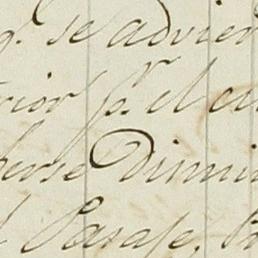 q.e se advier
rior p.r el cu
herse Dimin
l Parage,